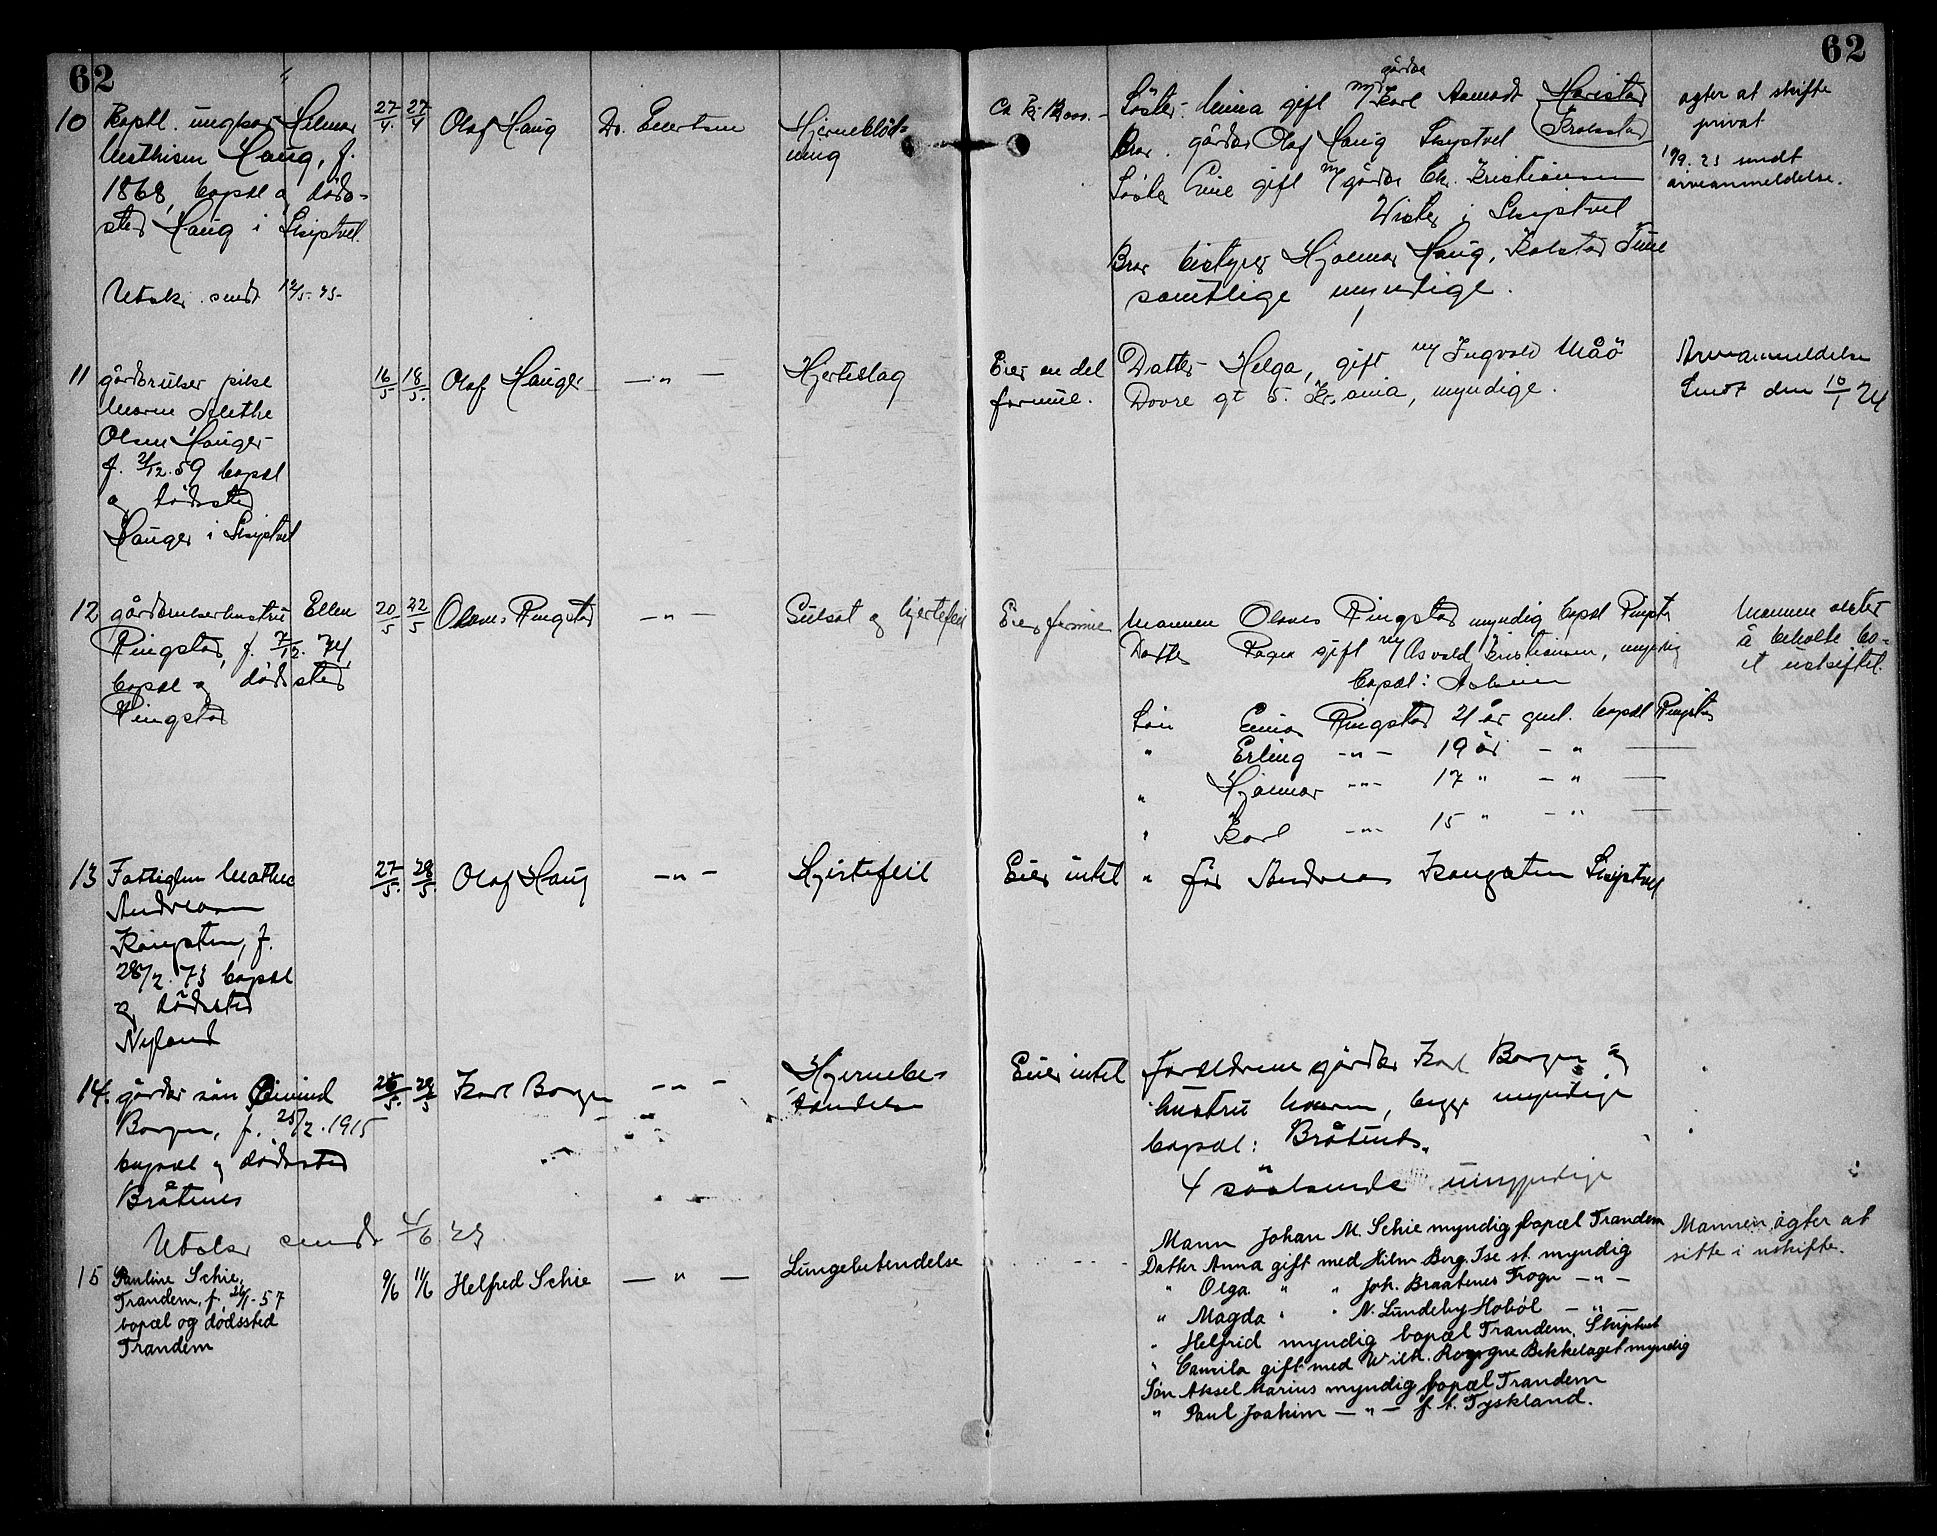 62
62
10
ungkar Hilmar
Mathisen Haug, f.
1868, bopæl og døds-
sted Haug i Skiptvet.
27/4 27/4
Olaf Haug
Dr. Evertsen
Hjerneblød-
ning
gårdbr
Søster: Minna gift m/ Karl Aamodt
Bror. gårdbr Olaf Haug Skiptvet
Søster gift m/ gårdbr Chr. Kristiansen
i Skiptvet
Bror bestyrer Hjalmar Haug, Kolstad Tune
samtlige myndige.
agter at skifte
privat
19/9. 23 sendt
arveanmeldelse.
Utskr. sendt 12/5. 23.
11
gårdbruker pike
Maren Alethe
Olsen Hauger
f. 2/12. 59 bopæl
og dødssted
Hauger i Skiptvet
16/5 18/5.
Olaf Hauger
— " —
Hjerteslag
Eier en del
formue.
Datter Helga, gift m/ Ingvald Måø
Dovre gt 5. Kr.ania, myndige.
Arveanmeldelse
sendt den 10/1 24
12
gårdbrukerhustru Ellen
Ringstad, f. 7/12. 74
bopæl og dødssted
Ringstad
20/5 22/5
Olaves Ringstad
— " —
Gulsot og hjertefeil
Eier formue
Mannen Olaves Ringstad myndig bopæl Ringstad
Datter Ragna gift m/ Asvald Kristiansen, myndig
bopæl: Askim
Søn Einar Ringstad 21 år gml. bopæl Ringstad
" Erling — " — 19 år — " —
" Hjalmar — " — 17 " — " —
" Karl — " — 15 " — " —
Mannen akter
å beholde bo-
et uskiftet.
13
Fattiglem Mathea
Andreasen
Kongsten, f.
28/2. 73 bopæl
og dødssted
Nyland
27/5. 28/5.
Olaf Haug
— " —
Hjertefeil
Eier intet
" far Andreas Kongsten Skiptvet
14.
gårdbr søn Eivind
Borgen, f. 25/2. 1915
bopæl og dødssted
Bråtenes
/5. 29/5
Karl Borgen
— " —
Hjernebe-
tændelse
Eier intet
Forældrene gårdbr Karl Borgen og
hustru Maren, begge myndige
bopæl: Bråtenes.
4 søskende umyndige
Utskr sendt 4/6 23
15
Pauline Schie,
Trandem, f. 26/1-57
bopæl og dødssted
Trandem
9/6 11/6
Helfred Schie
— " —
Lungebetendelse
Mann Johan M. Schie myndig bopæl Trandem
Datter Anna gift med Hilm Borg. Ise st. myndig
" Olga " " Joh. Braatenes Trogn — " —
" Magda " " N. Lundeby Hobøl — " —
" Helfrid myndig bopæl Trandem, Skiptvet
" Camila gift med Wilh. Rogne Bekkelaget myndig
Søn Aksel Marius myndig bopæl Trandem
" Paul Joakim — " — f. t. Tyskland.
Mannen agter at
sitte i uskifte.